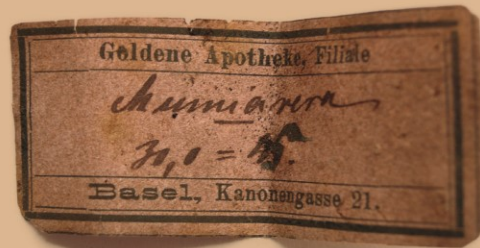 Goldene Apotheke, Filiale
Mumia vera
30,0 =
Basel, Kanonengasse 21.